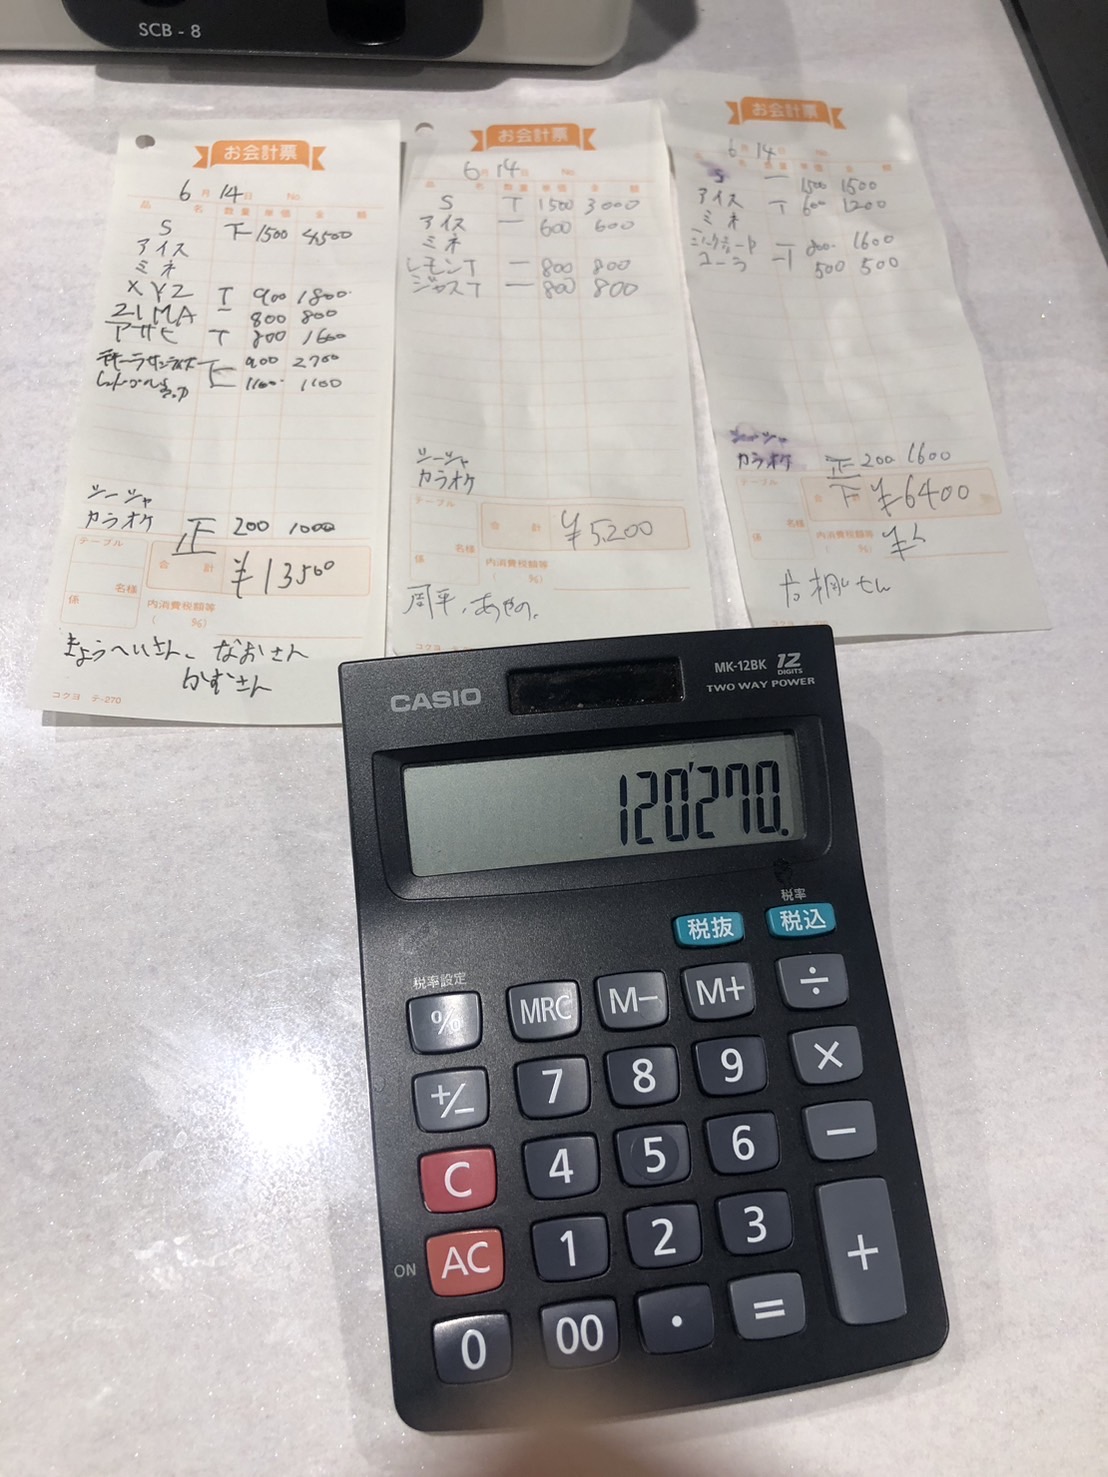 SCB - 8
お会計票
6月 14日 No.
品 名 数量 単価 金 額
S 下 1500 4,500
アイス
ミネ
XYZ T 900 1800
ZIMA 一 800 800
アサヒ T 800 1600
900 2700
1100 1100
シーシャ
カラオケ 正 200 1000
テーブル
合 計 ¥13500
名様
係 内消費税額等
( %)
きょうへいさん、なおさん
かずさん
コクヨ テ-270
お会計票
6月 14日 No.
品 名 数量 単価 金 額
S T 1500 3000
アイス 一 600 600
ミネ
レモンT 一 800 800
ジャスT 一 800 800
シーシャ
カラオケ
テーブル
合 計 ¥5,200
名様
係 内消費税額等
( %)
周平、あやの、
お会計票
6月 14日 No.
数量 単価 金 額
S 一 1500 1500
アイス T 600 1200
ミネ
800 1600
コーラ 500 500
シーシャ
カラオケ 正下 200 1600
テーブル
合 計 ¥6400
名様
係 内消費税額等
( %)
CASIO
MK-12BK 12 DIGITS
TWO WAY POWER
120'270.
税率
税抜 税込
税率設定
% MRC M− M+ ÷
+/− 7 8 9 ×
C 4 5 6 −
ON AC 1 2 3 +
0 00 · =